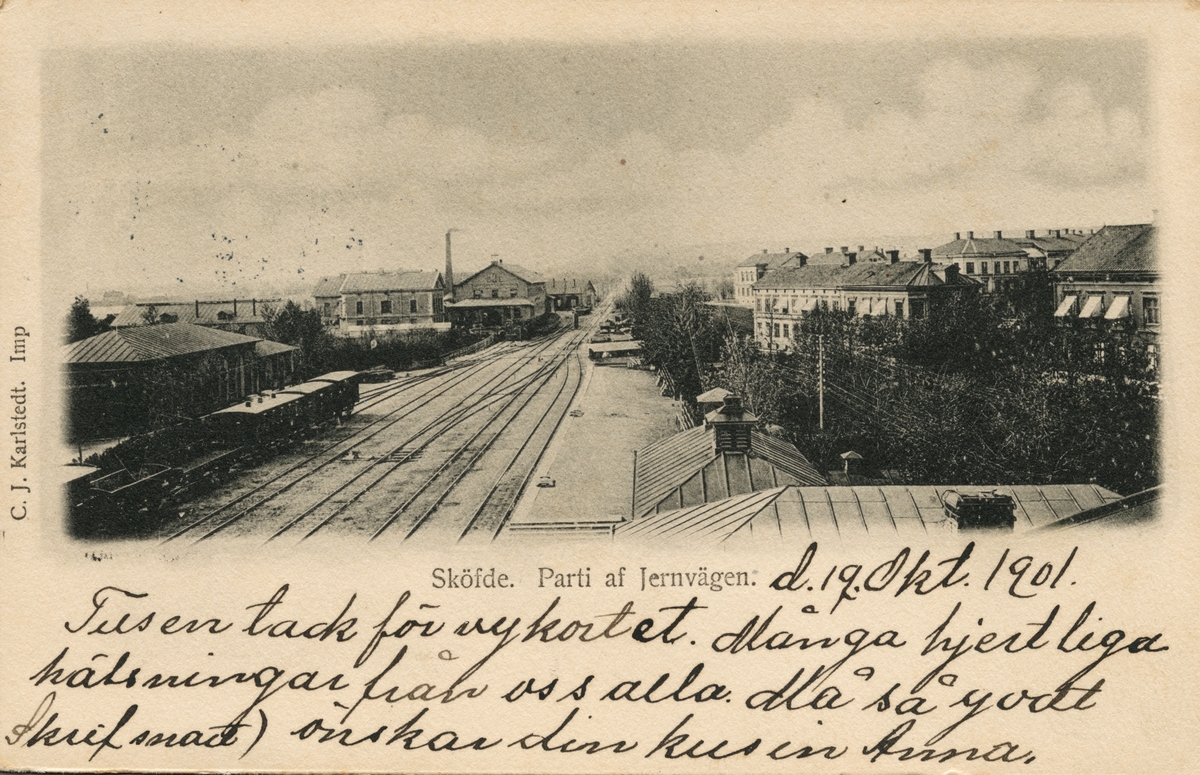 C. J. Karlstedt. Imp
Sköfde. Parti af Jernvägen. d. 19. Okt. 1901.
Tusen tack för vykortet. Många hjertliga
hälsningar från oss alla. Må så godt
Skrif snart) önskar din kusin Anna.